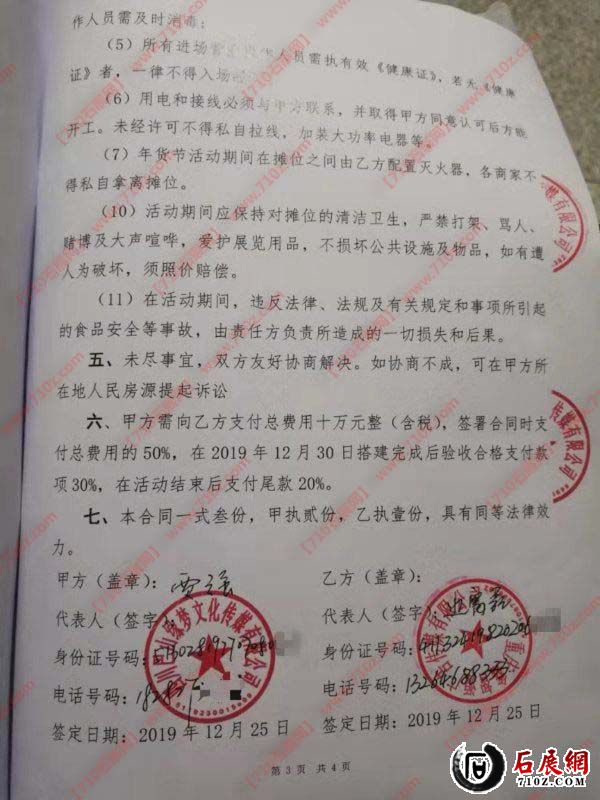 作人员需及时消毒；
（5）所有进场 人员需执有效《健康证》，若无《健康
证》者，一律不得入场
（6）用电和接线必须与甲方联系，并取得甲方同意认可后方能
开工。未经许可不得私自拉线，加装大功率电器等。
（7）年货节活动期间在摊位之间由乙方配置灭火器，各商家不
得私自拿离摊位。
（10）活动期间应保持对摊位的清洁卫生，严禁打架、骂人、
赌博及大声喧哗，爱护展览用品，不损坏公共设施及物品，如有遭
人为破坏，须照价赔偿。
（11）在活动期间，违反法律、法规及有关规定和事项所引起
的食品安全等事故，由责任方负责所造成的一切损失和后果。
五、未尽事宜，双方友好协商解决。如协商不成，可在甲方所
在地人民房源提起诉讼
六、甲方需向乙方支付总费用十万元整（含税），签署合同时支
付总费用的50%，在 2019 年 12 月 30 日搭建完成后验收合格支付款
项30%，在活动结束后支付尾款 20%。
七、本合同一式叁份，甲执贰份，乙执壹份，具有同等法律效
力。
甲方（盖章）：
乙方（盖章）：
代表人（签字）：
代表人（签字）：
身份证号码：
身份证号码：
电话号码：
电话号码：
签定日期：2019 年 12 月 25 日
签定日期：2019 年 12 月 25 日
第 3 页 共 4 页
石展网
7102.COM